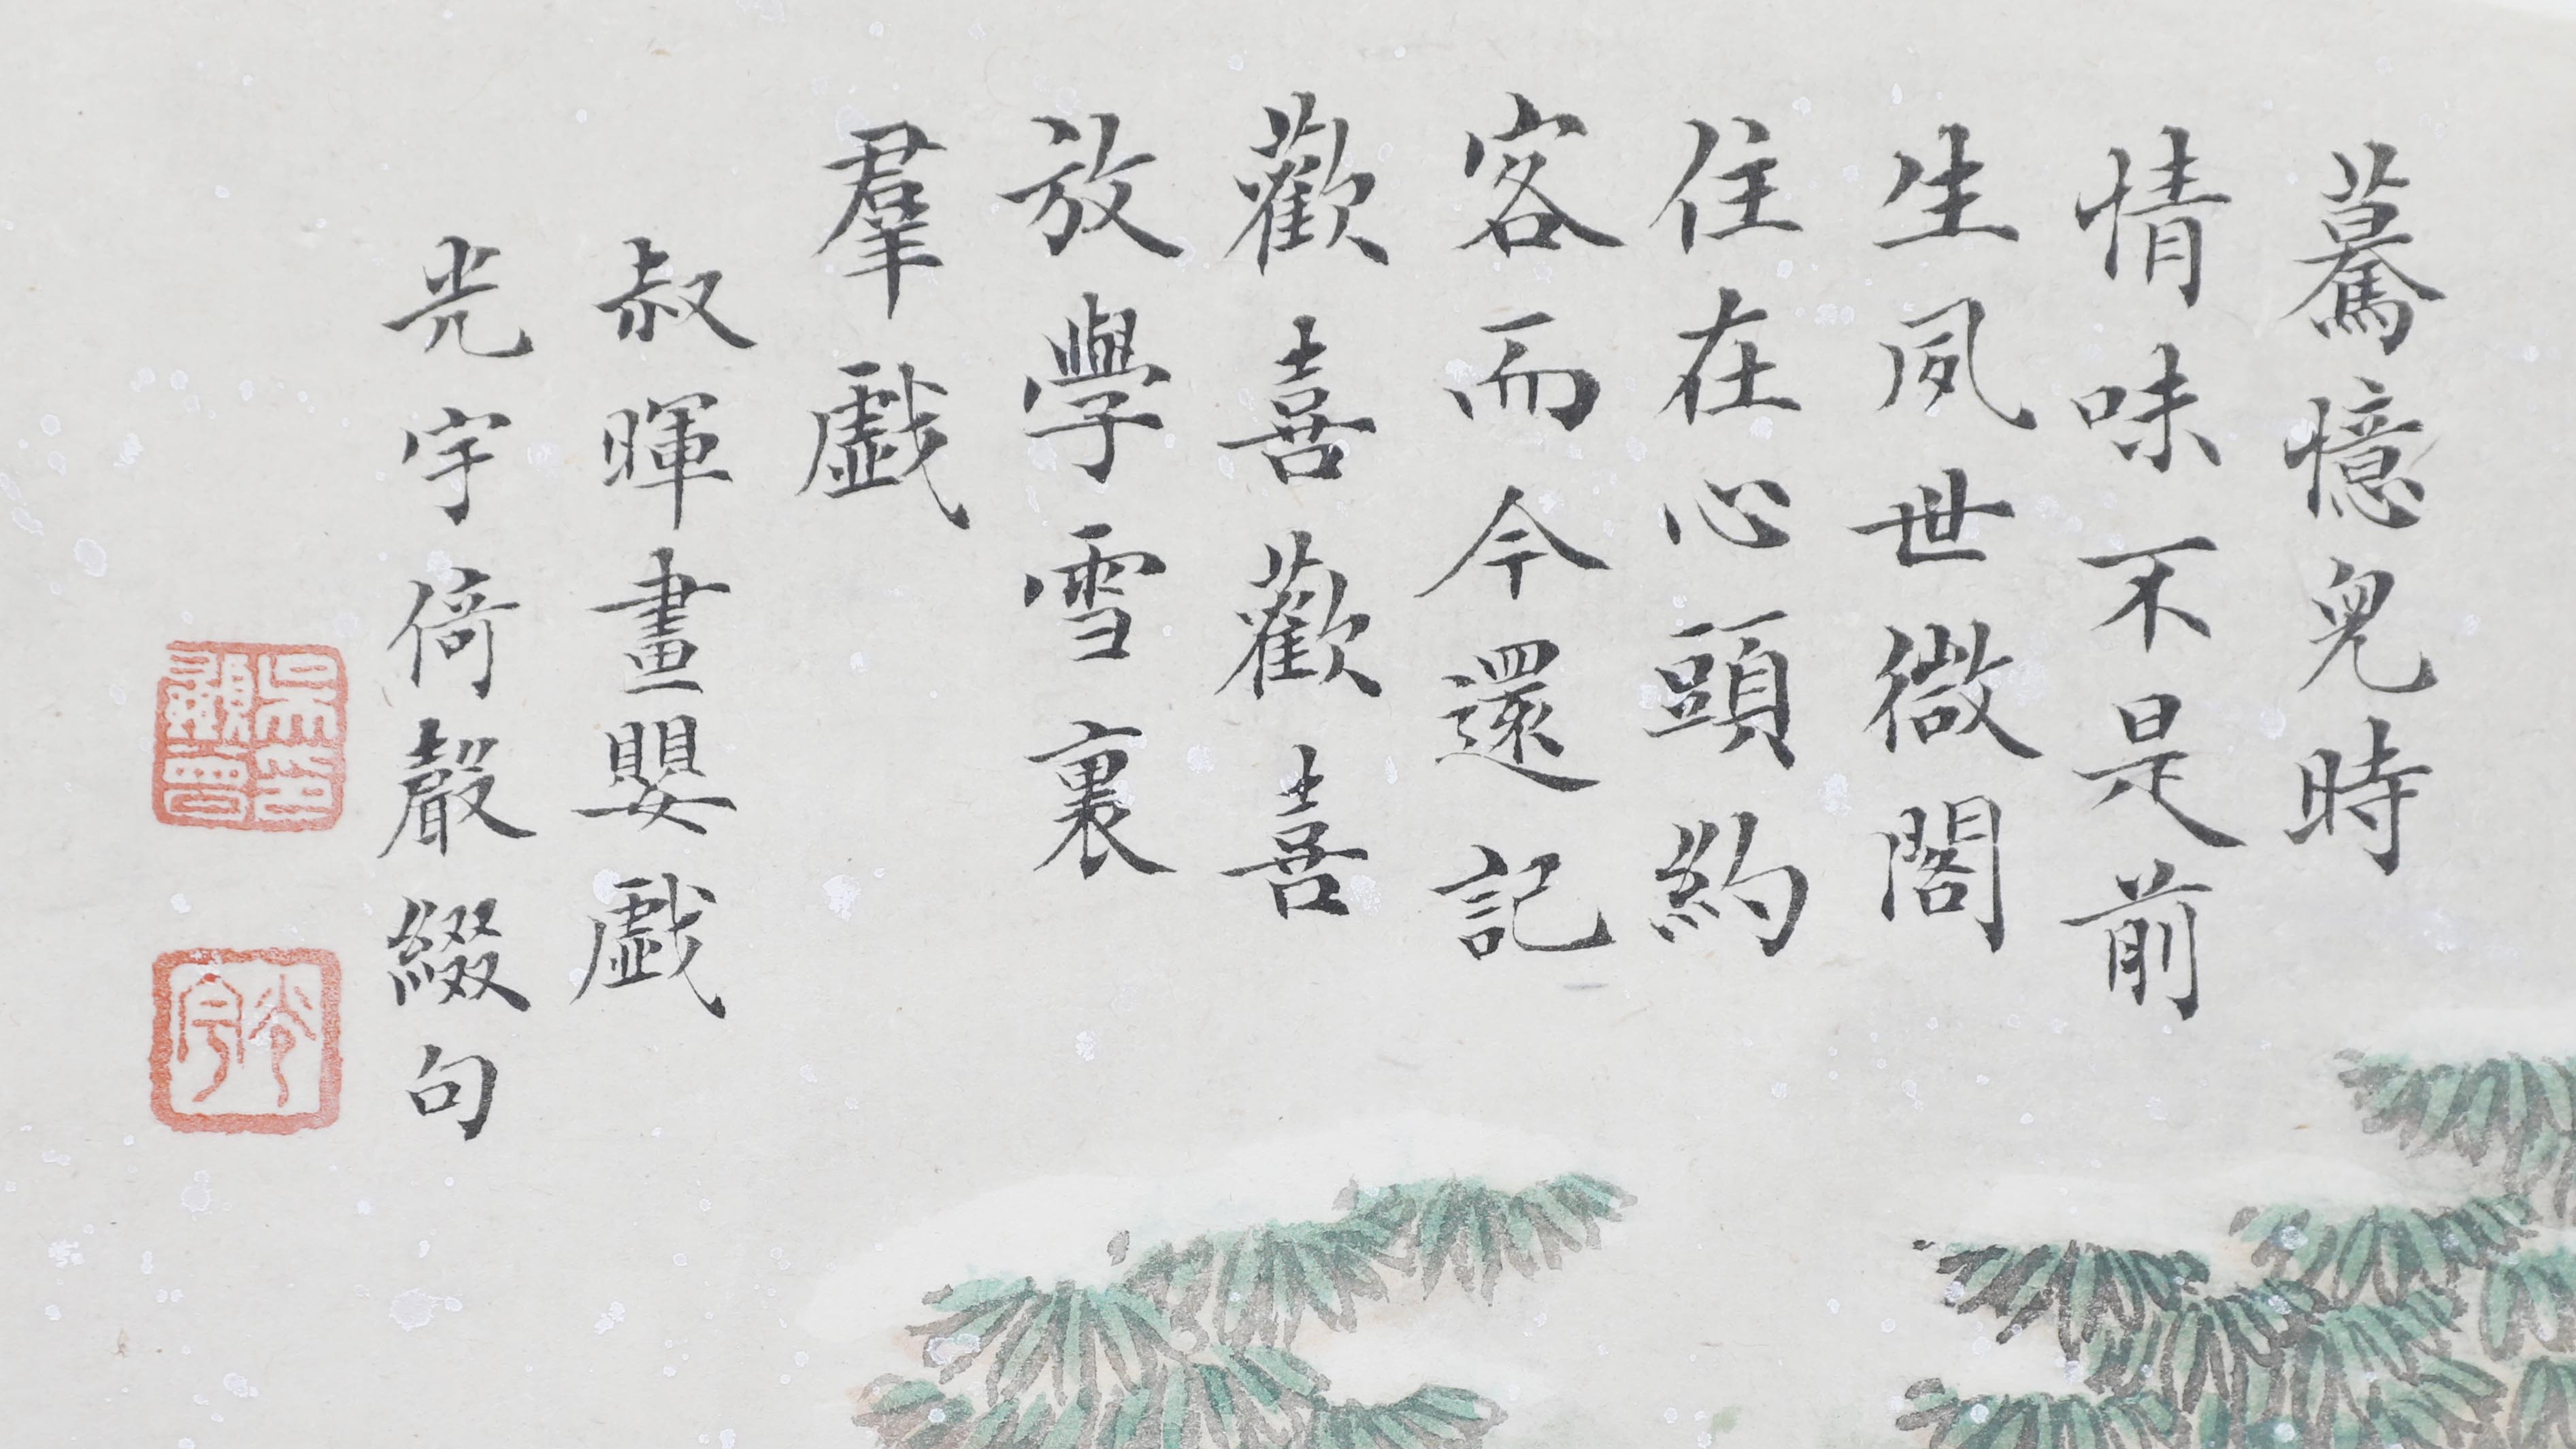 驀憶兒時
情味不是前
生夙世微閤
住在心頭約
客而今還記
歡喜歡喜
放學雪裏
羣戲
叔暉畫嬰戲
光宇倚聲綴句